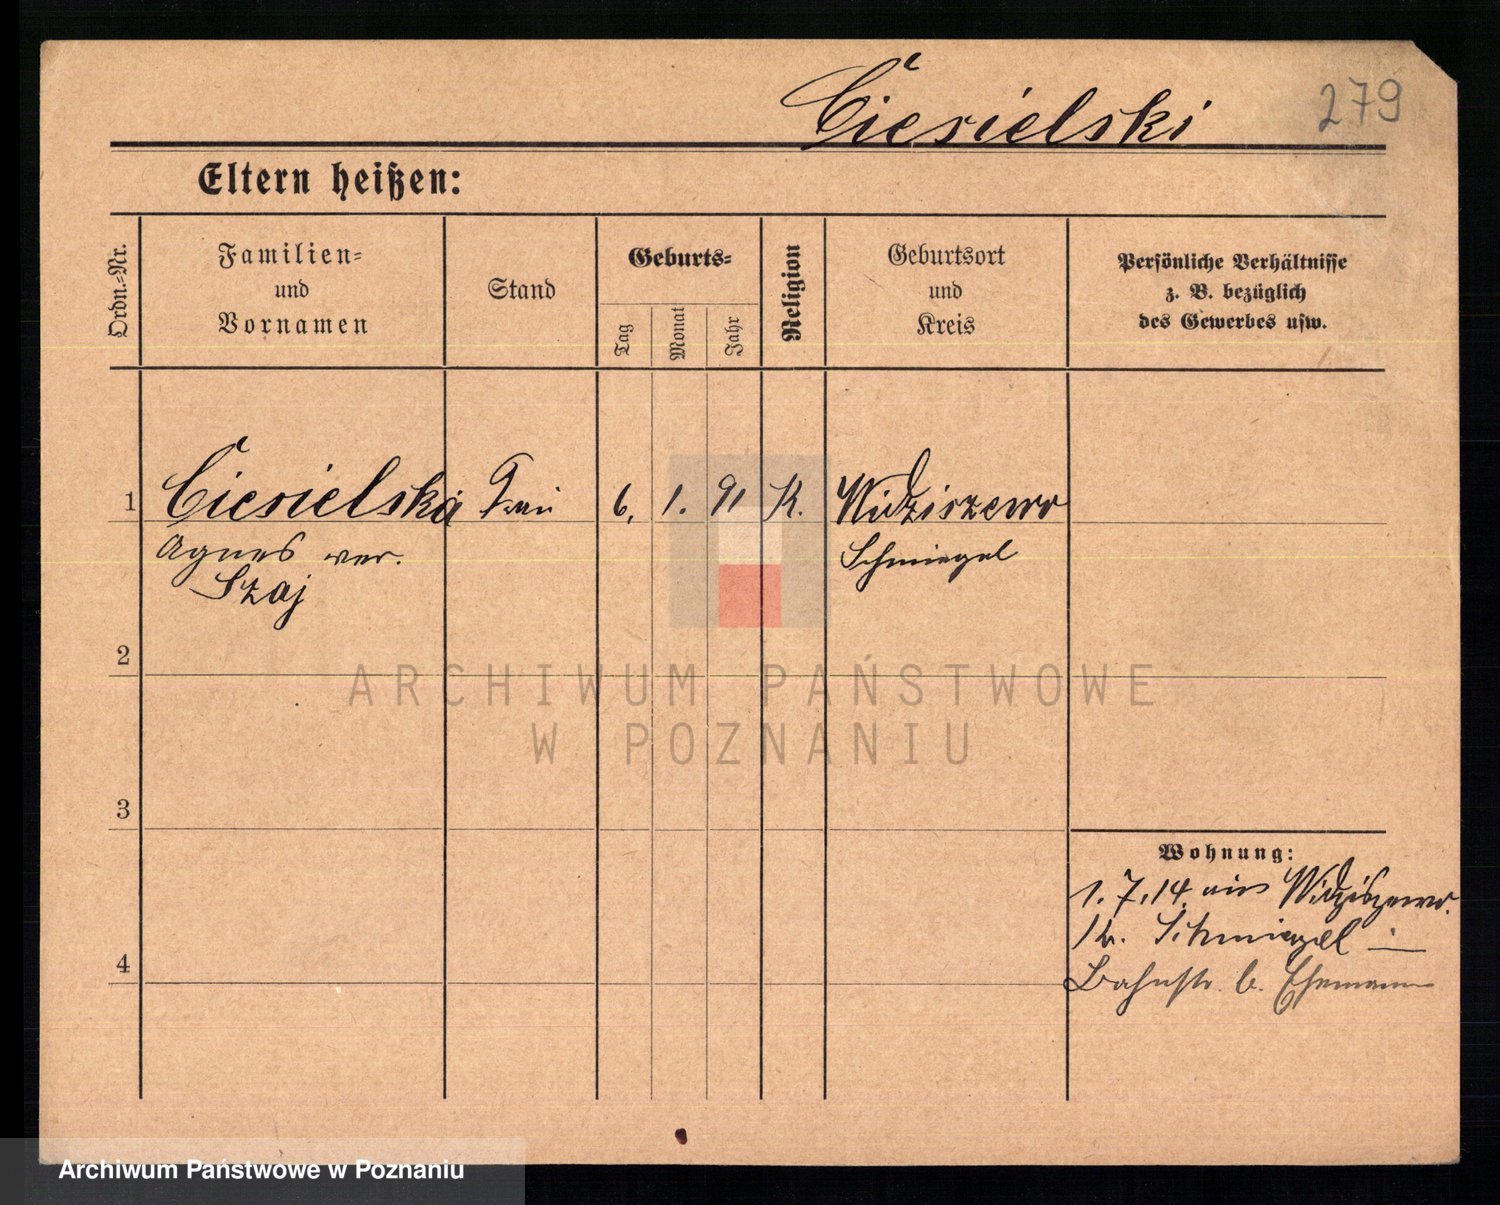 Ciesielski 279
Eltern heißen:
Ordn.-Nr.
Familien-
und
Vornamen
Stand
Geburts-
Tag
Monat
Jahr
Religion
Geburtsort
und
Kreis
Persönliche Verhältnisse
z. B. bezüglich
des Gewerbes usw.
1 Ciesielska Frau 6. 1. 91 K. Widziszewo
Agnes ver. Schmiegel
Szaj
2
ARCHIWUM PAŃSTWOWE
W POZNANIU
3
Wohnung:
1.7.14 aus Widziszewo.
Kr. Schmiegel
4
Bahnstr. b. Ehemann
Archiwum Państwowe w Poznaniu